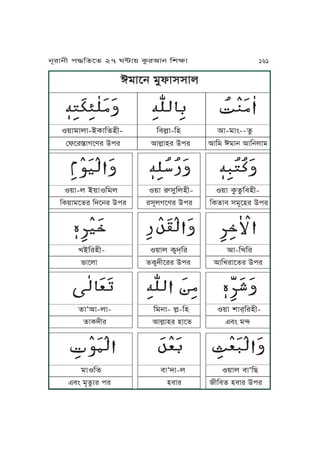 নূরানী পদ্ধতিতে ২৭ ঘন্টায় কুরআন শিক্ষা ১৬১
ঈমানে মুফাসসাল
اٰمَنْتُ بِاللّٰهِ وَمَلٰٓئِكَتِهٖ
আ-মাং--তু বিল্লা-হি ওয়ামালা-ইকাতিহী-
আমি ঈমান আনিলাম আল্লাহর উপর ফেরেস্তাগণের উপর
وَكُتُبِهٖ وَرُسُلِهٖ وَالْيَوْمِ
ওয়া কুতুবিহী- ওয়া রুসুলিহী- ওয়া-ল ইয়াওমিল
কিতাব সমূহের উপর রসূলগণের উপর কিয়ামতের দিনের উপর
الْاٰخِرِ وَالْقَدْرِ خَيْرِهٖ
আ-খিরি ওয়াল ক্বদ্‌রি খইরিহী-
আখিরাতের উপর তক্বদীরের উপর ভালো
وَشَرِّهٖ مِنَ اللّٰهِ تَعَالٰى
ওয়া শার্‌রিহী- মিনা- ল্ল-হি তা'আ-লা-
এবং মন্দ আল্লাহর হাতে তাকদীর
وَالْبَعْثِ بَعْدَ الْمَوْتِ
ওয়াল বা'ছি বা'দা-ল মাওতি
জীবিত হবার উপর হবার এবং মৃত্যুর পর